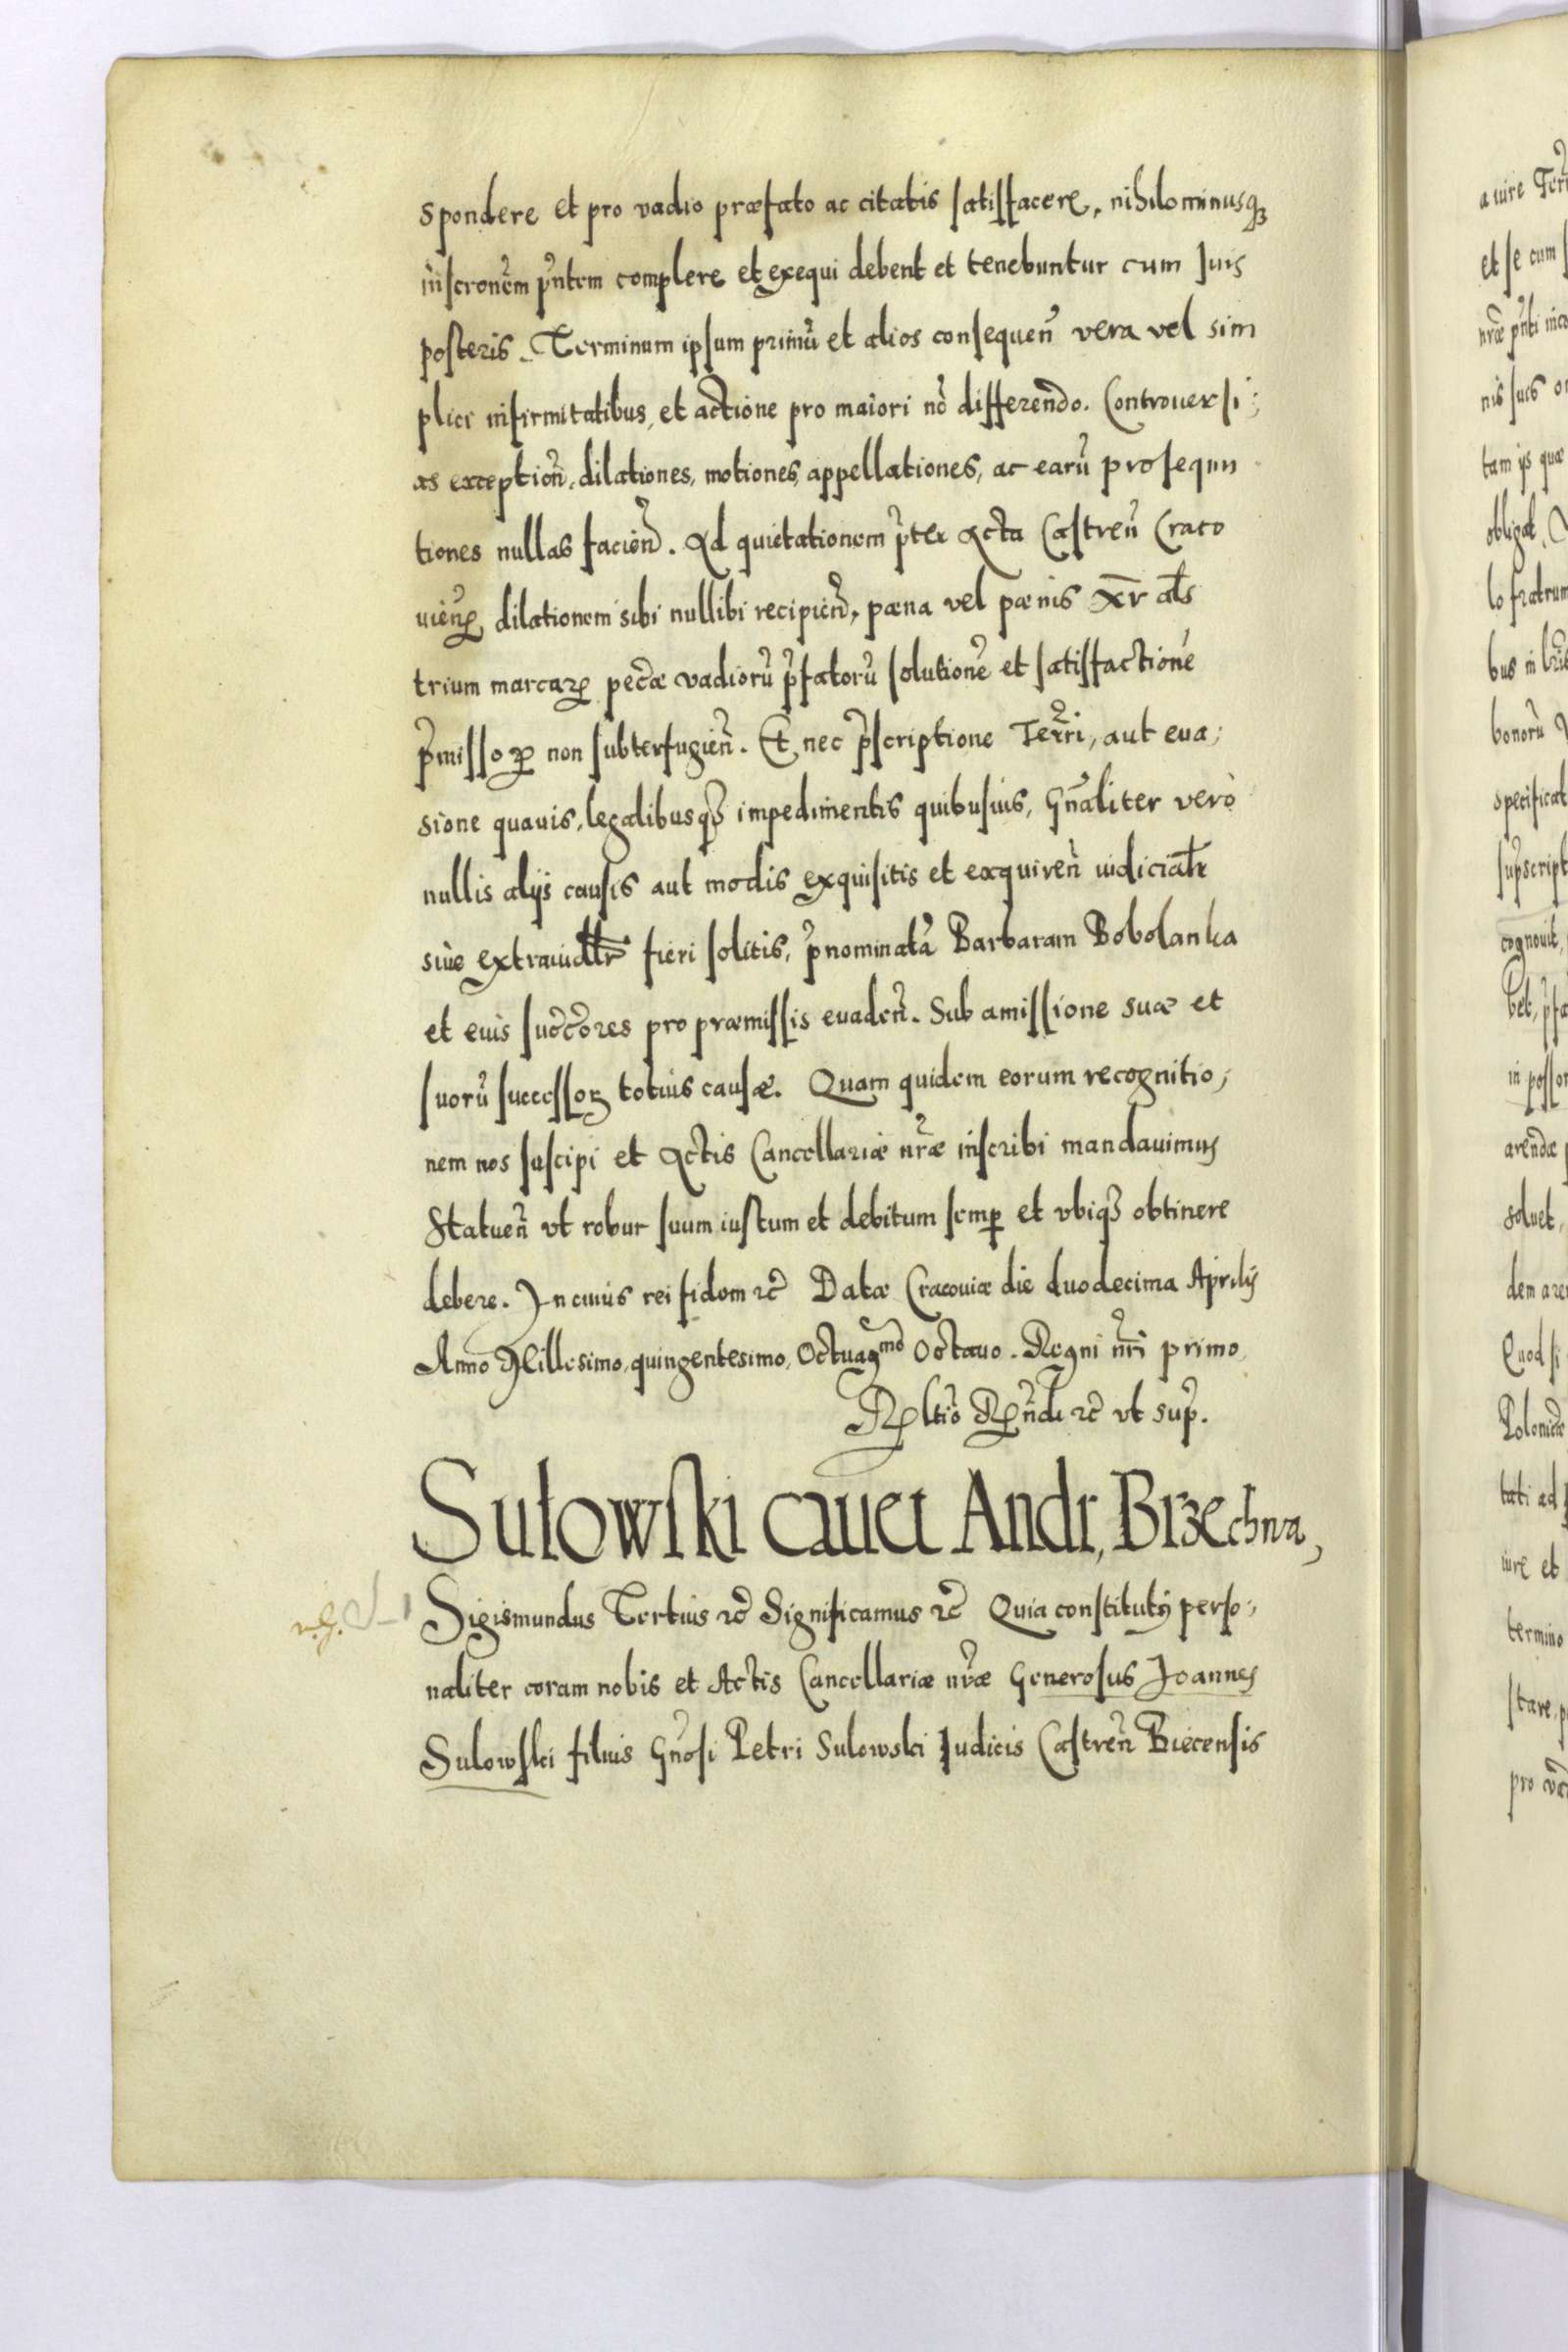 spondere et pro vadio præfato ac citatis satisfacere, nihilominusq₃
inscronẽm pñtem complere et exequi debent et tenebuntur cum suis
posteris. Terminum ipsum primũ et alios consequeñ vera vel sim
plici infirmitatibus, et actione pro maiori nõ differendo. Controuersi;
as exceptioñ, dilationes, motiones, appellationes, ac earũ prosequu
tiones nullas facieñ. Ad quietationem p̃ter Acta Castreñ Craco
uieñ, dilationem sibi nullibi recipieñ, pæna vel pænis Xr̃ al̃s
trium marcarꝝ pec̃æ vadiorũ p̃fatorũ solutionẽ et satisfactionẽ
p̃missoꝝ non subterfugieñ. Et nec p̃scriptione Terr̃i, aut eua;
sione quauis, legalibusq₃ impedimentis quibusuis, Gñaliter verò
nullis alijs causis aut modis exquisitis et exquireñ iudicial̃r
siue extraiud̃lr fieri solitis, p̃nominatã Barbaram Bobolanka
et eius succ̃ores pro præmissis euadeñ. Sub amissione suæ et
suorũ successoꝝ totius causæ. Quam quidem eorum recognitio;
nem nos suscipi et Actis Cancellariæ nr̃æ inscribi mandauimus
Statueñ vt robur suum iustum et debitum semp̱ et vbiq₃ obtinere
debere. In cuius rei fidem ꝛc̃ Datæ Cracouiæ die duodecima Aprilis
Anno Millesimo, quingentesimo, Octuagᵐᵒ Octauo. Regni nr̃i primo
Rltiõ Rñdi ꝛc̃ vt sup̃.
Sulowski cauet Andr, Brzechna,
Sigismundus Tertius ꝛc̃ Significamus ꝛc̃ Quia constitutus perso;
naliter coram nobis et Actis Cancellariæ nr̃æ Generosus Joannes
Sulowski filius Gñosi Petri Sulowski Iudicis Castreñ Biecensis